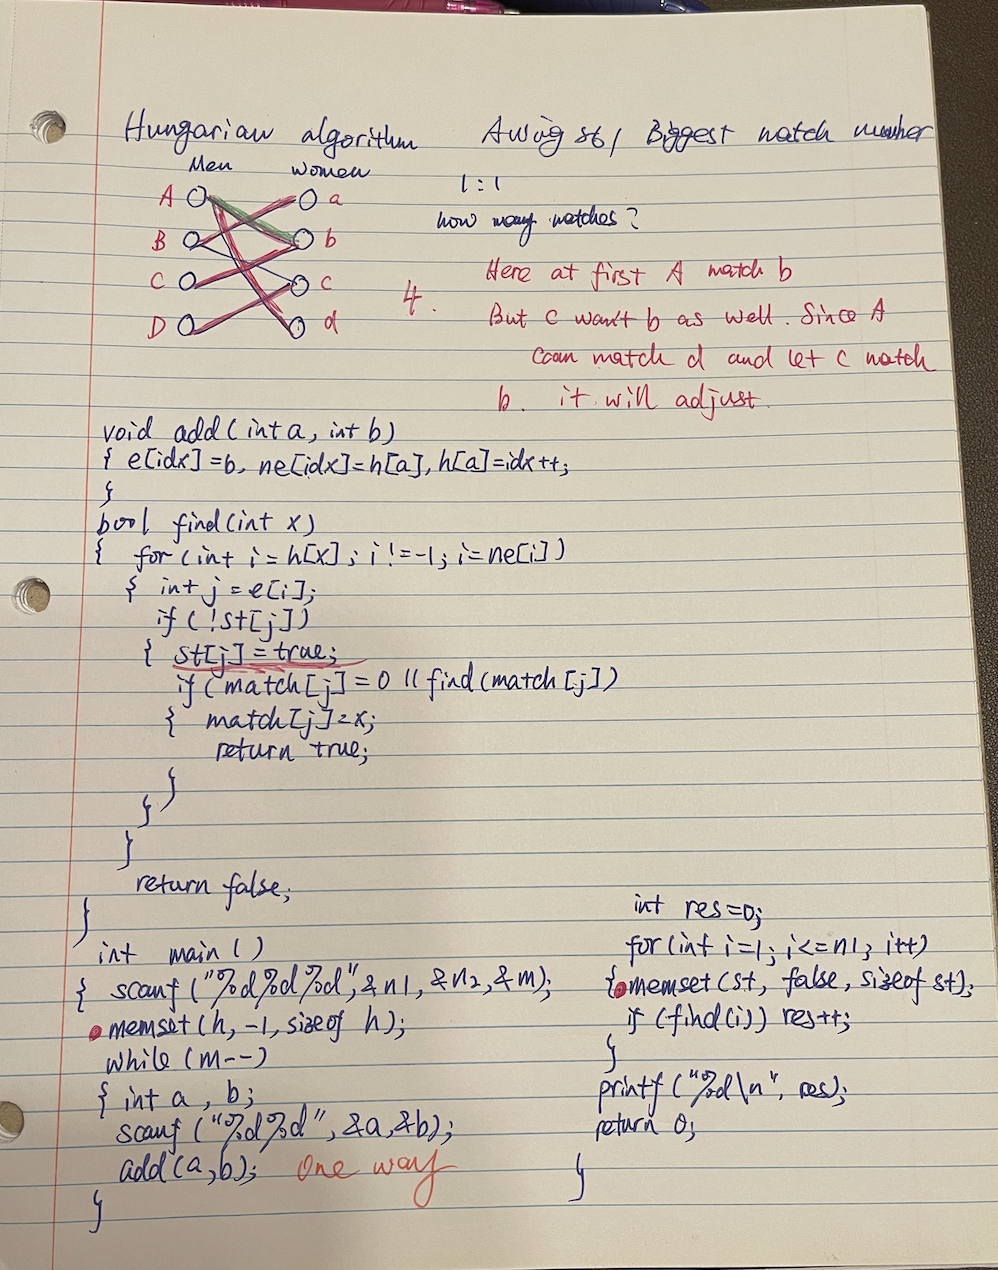 Hungarian algorithm Acwing 861 Biggest match number
Men women
1:1
how many matches?
A a
B b
C c
D d
4.
Here at first A match b
But C want b as well. Since A
can match d and let C match
b. it will adjust.
void add(int a, int b)
{ e[idx]=b, ne[idx]=h[a], h[a]=idx++;
}
bool find(int x)
{ for(int i=h[x]; i!=-1; i=ne[i])
{ int j=e[i];
if(!st[j])
{ st[j]=true;
if(match[j]=0 || find(match[j])
{ match[j]=x;
return true;
}
}
}
return false;
}
int main()
{ scanf("%d%d%d",&n1,&n2,&m);
memset(h,-1,sizeof h);
while(m--)
{ int a, b;
scanf("%d%d",&a,&b);
add(a,b); One way
}
int res=0;
for(int i=1; i<=n1; i++)
{ memset(st, false, sizeof st);
if(find(i)) res++;
}
printf("%d\n", res);
return 0;
}